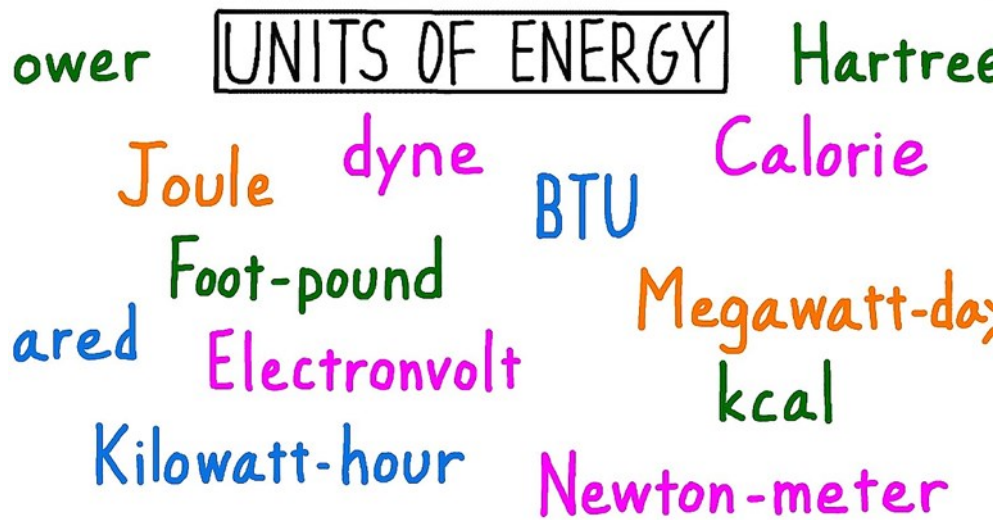 ower UNITS OF ENERGY Hartree
dyne Calorie
Joule BTU
Foot-pound
Megawatt-day
ared Electronvolt
kcal
Kilowatt-hour
Newton-meter